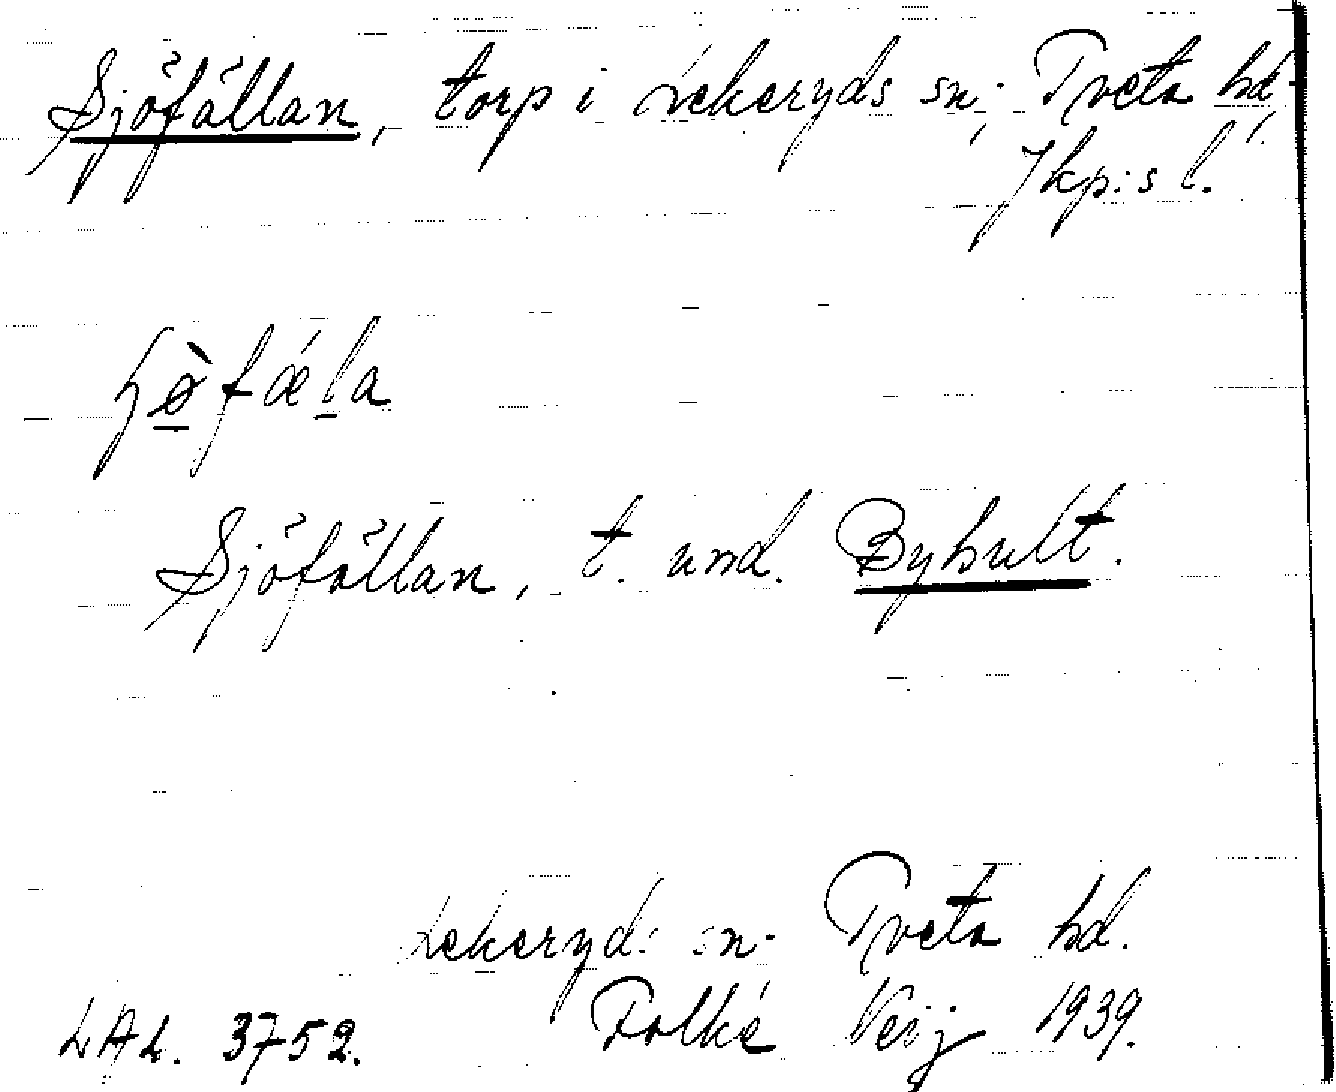 Sjöfällan, torp i Lekeryds sn, Tveta hd.
Jkp:s l.
Sjöfällan, t. und. Byhult.
Lekeryds sn. Tveta hd.
LAL. 3752. Folke Veij 1939.